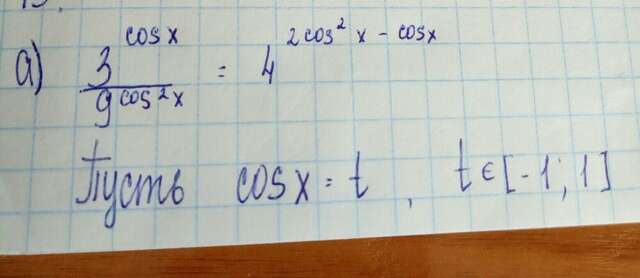 а) 3^cosx / 9^cos²x = 4^2cos²x - cosx
Пусть cosx = t, t ∈ [-1; 1]